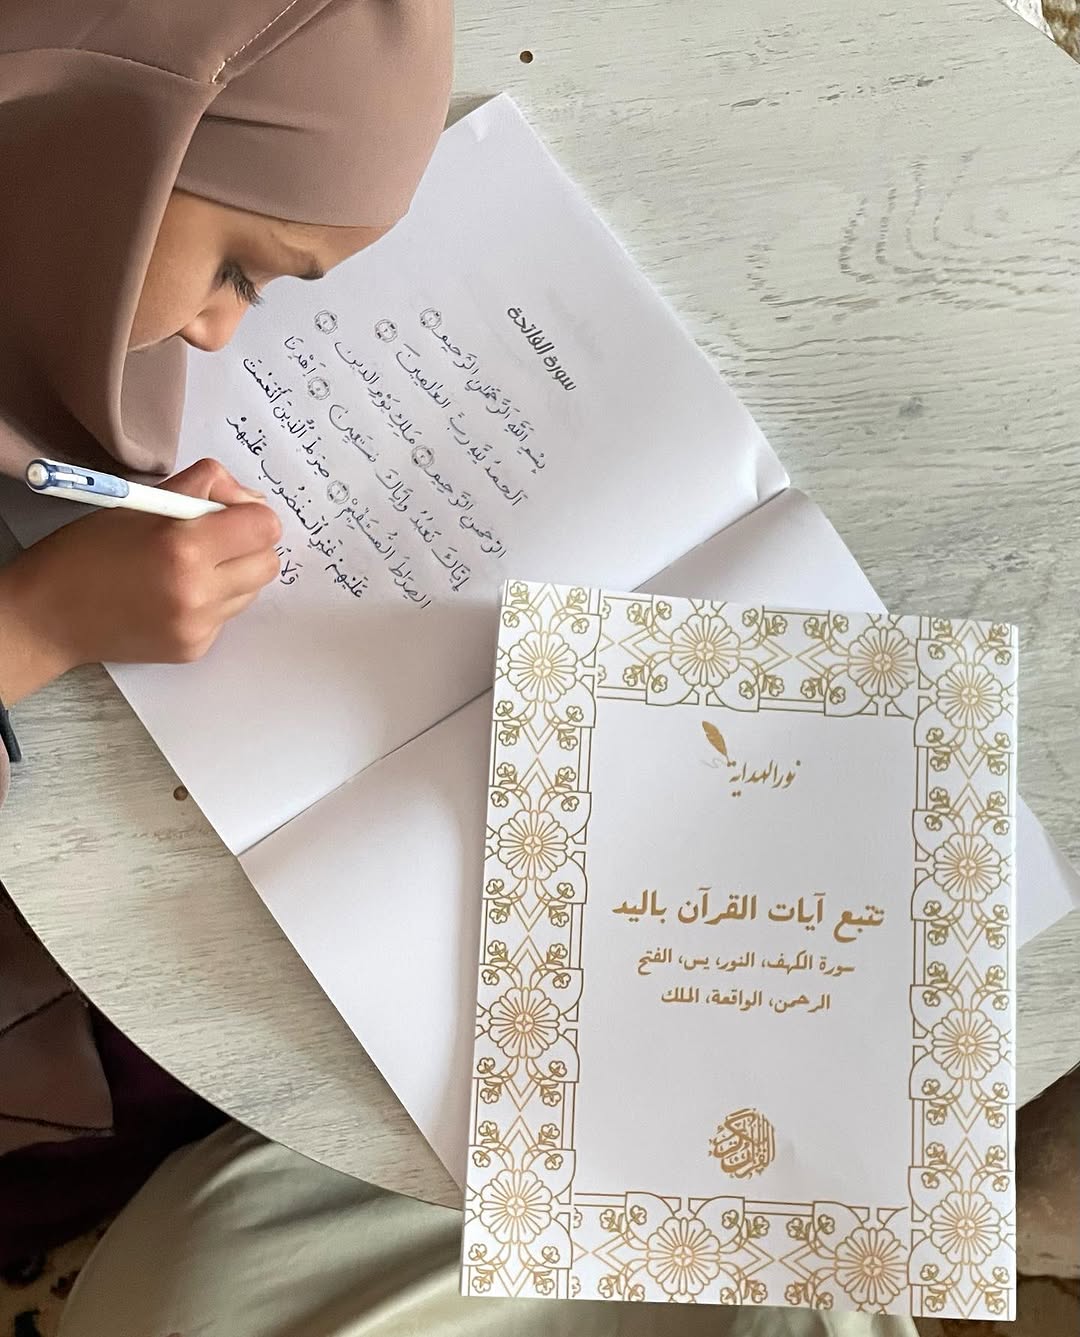 سورة الفاتحة
بِسْمِ اللَّهِ الرَّحْمَٰنِ الرَّحِيمِ ١
الْحَمْدُ لِلَّهِ رَبِّ الْعَالَمِينَ ٢
الرَّحْمَٰنِ الرَّحِيمِ ٣ مَالِكِ يَوْمِ الدِّينِ ٤
إِيَّاكَ نَعْبُدُ وَإِيَّاكَ نَسْتَعِينُ ٥ اهْدِنَا
الصِّرَاطَ الْمُسْتَقِيمَ ٦ صِرَاطَ الَّذِينَ أَنْعَمْتَ
عَلَيْهِمْ غَيْرِ الْمَغْضُوبِ عَلَيْهِمْ
وَلَا
نور الهداية
تتبع آيات القرآن باليد
سورة الكهف، النور، يس، الفتح
الرحمن، الواقعة، الملك
القرآن الكريم